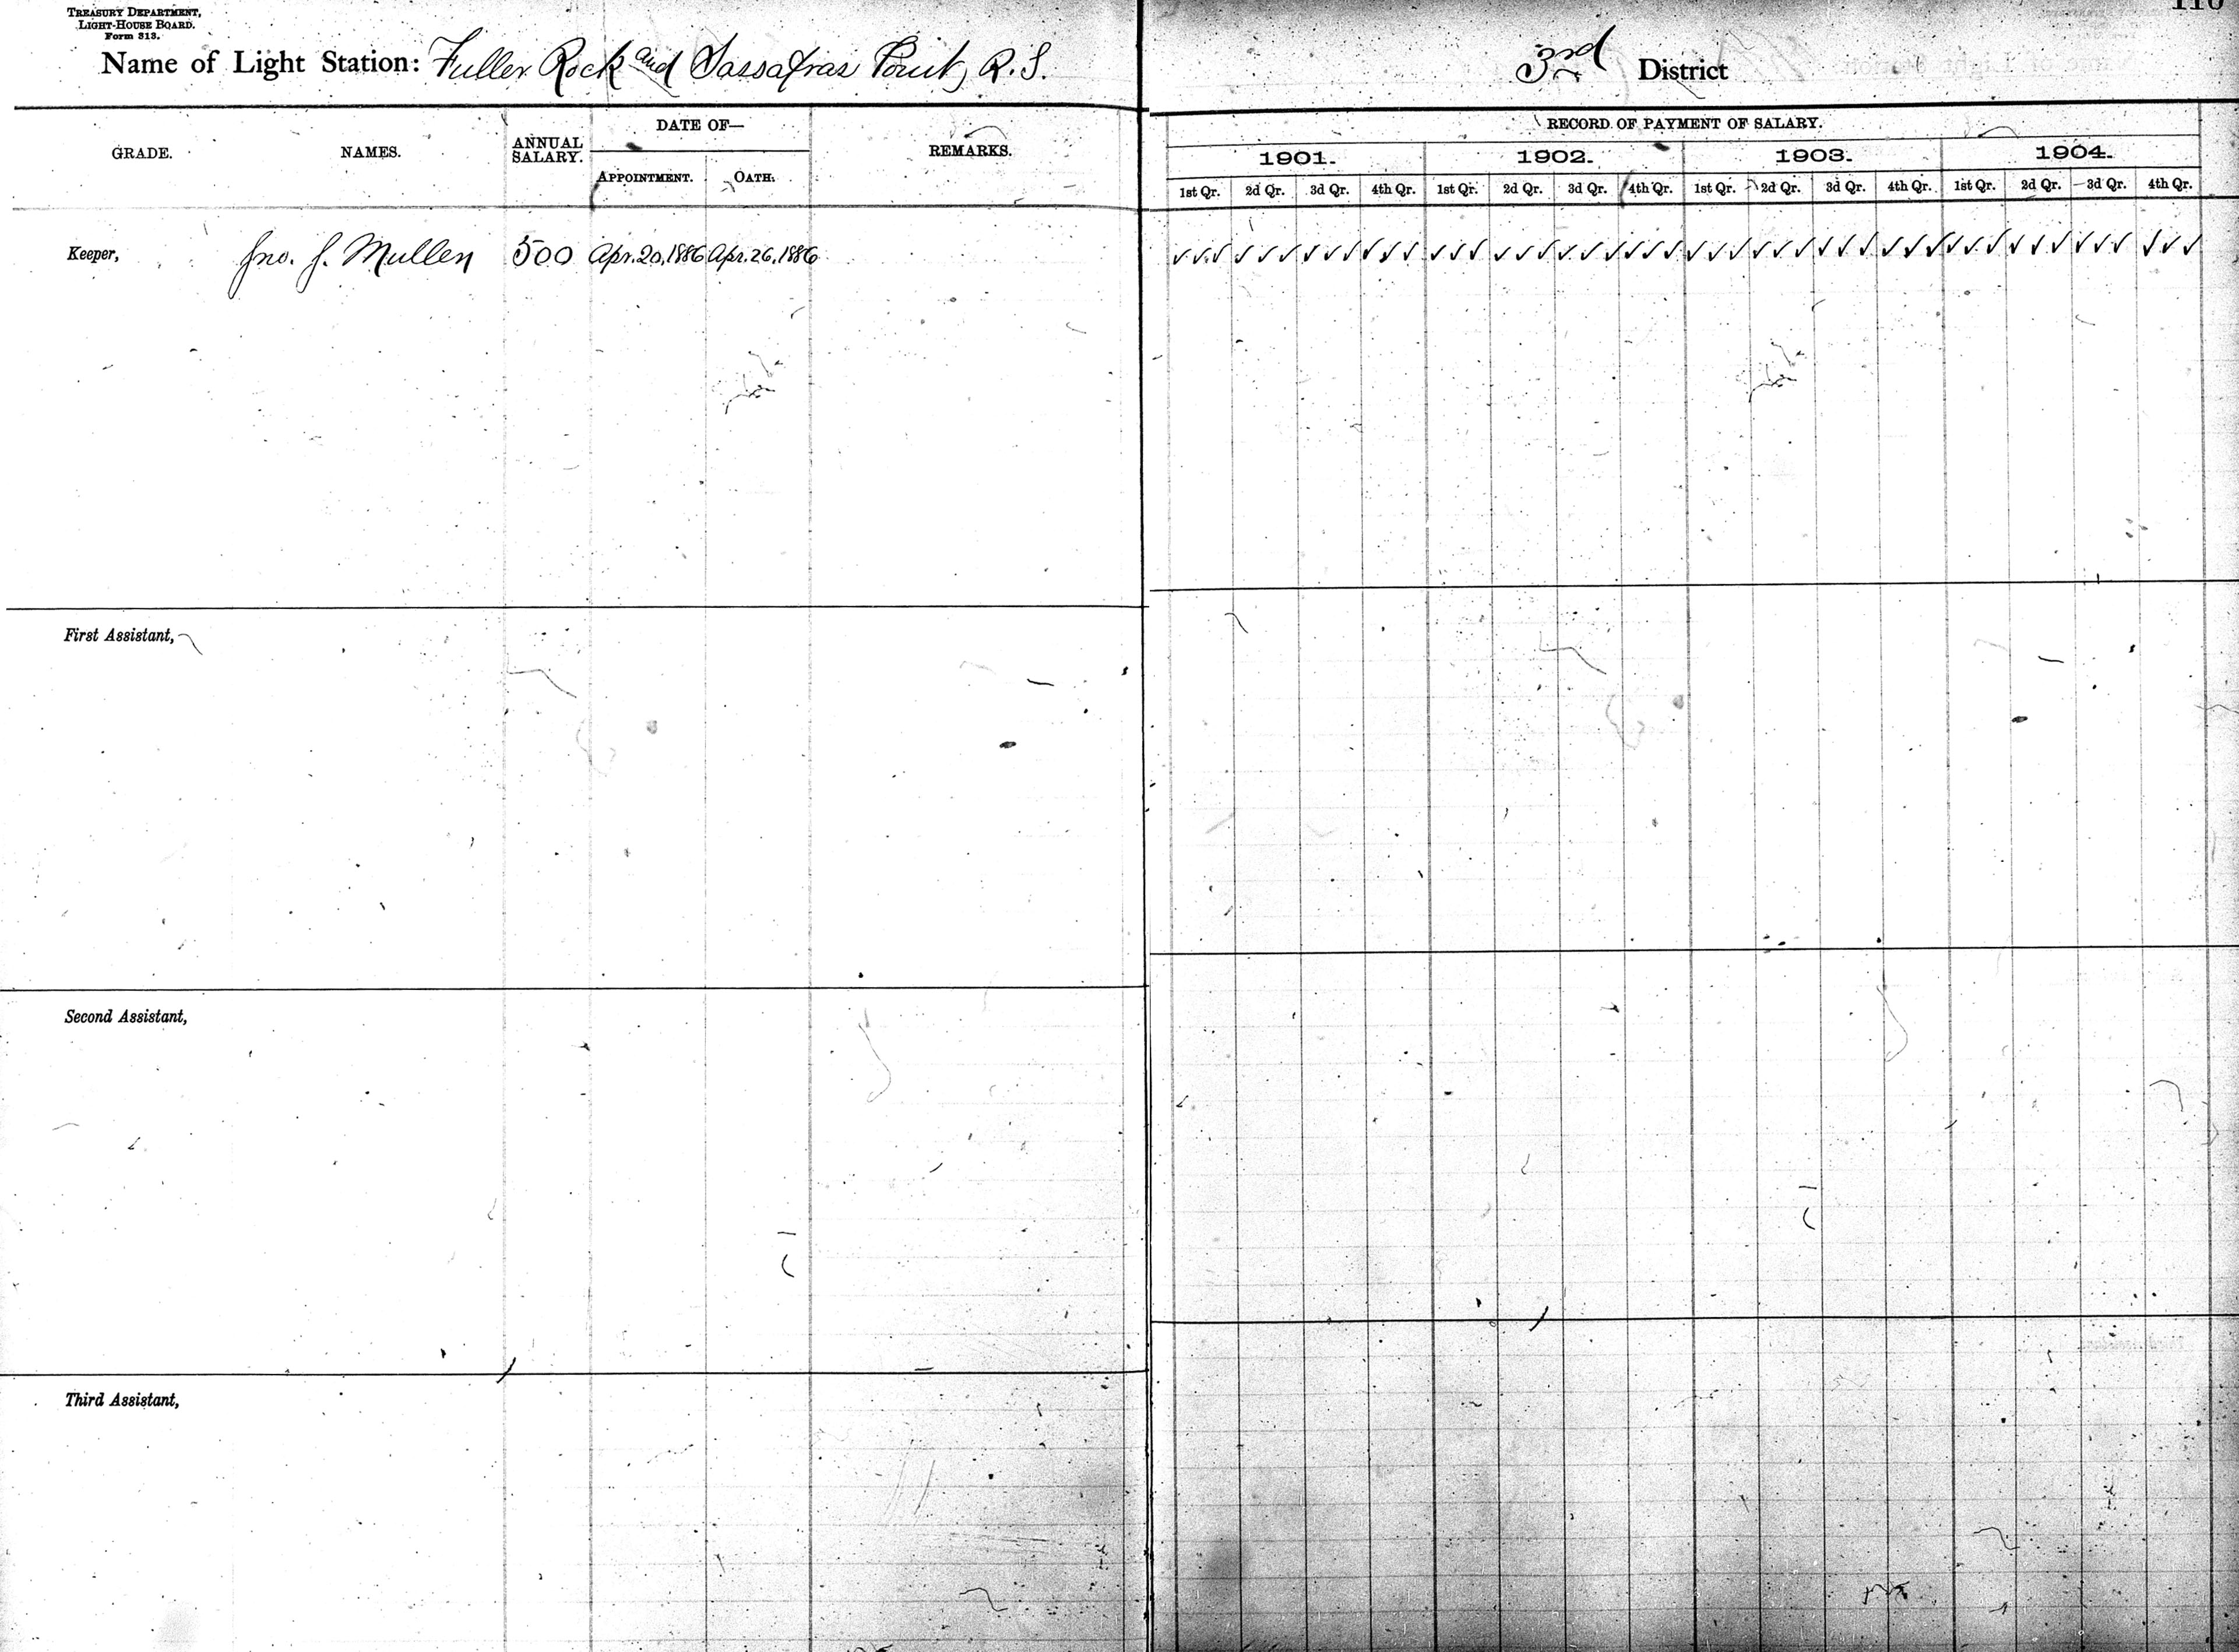 TREASURY DEPARTMENT,
LIGHT-HOUSE BOARD.
Form 313.
Name of Light Station: Fuller Rock and Sassafras Point, R.I.
3rd District
GRADE.
NAMES.
ANNUAL SALARY.
DATE OF—
APPOINTMENT.
OATH.
REMARKS.
RECORD OF PAYMENT OF SALARY.
1901. 1902. 1903. 1904.
1st Qr. 2d Qr. 3d Qr. 4th Qr. 1st Qr. 2d Qr. 3d Qr. 4th Qr. 1st Qr. 2d Qr. 3d Qr. 4th Qr. 1st Qr. 2d Qr. 3d Qr. 4th Qr.
Keeper, Jno. J. Mullen 500 Apr. 20, 1886 Apr. 26, 1886 ✓✓✓ ✓✓✓ ✓✓✓ ✓✓✓ ✓✓✓ ✓✓✓ ✓✓✓ ✓✓✓ ✓✓✓ ✓✓✓ ✓✓✓ ✓✓✓ ✓✓✓ ✓✓✓ ✓✓✓ ✓✓✓
First Assistant,
Second Assistant,
Third Assistant,